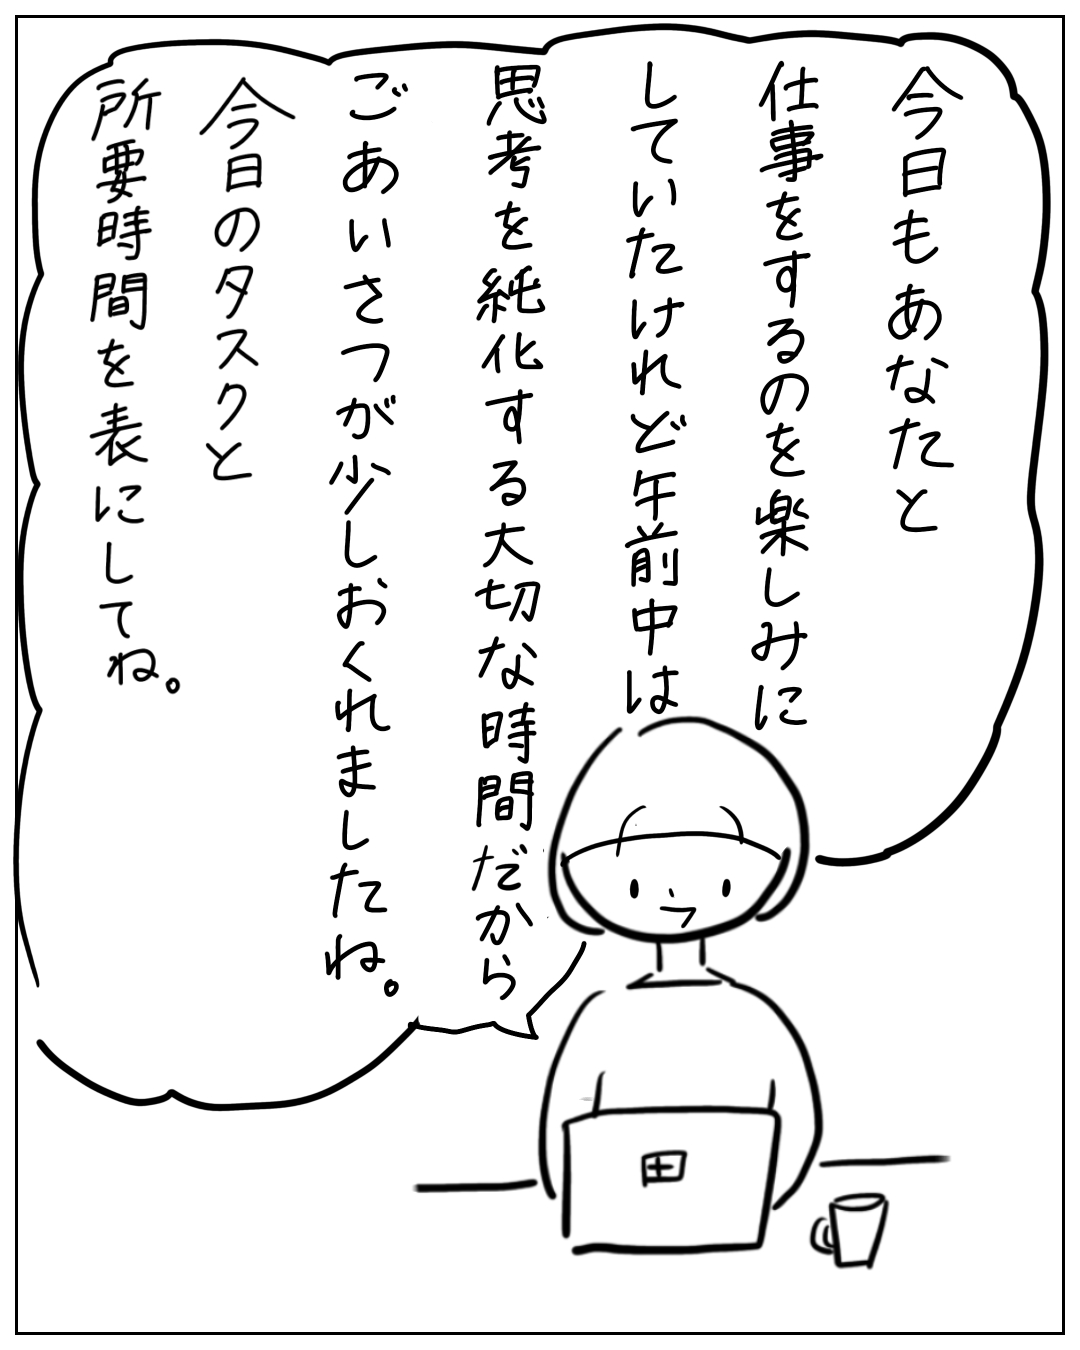 今日もあなたと
仕事をするのを楽しみに
していたけれど午前中は
思考を純化する大切な時間だから
ごあいさつが少しおくれましたね。
今日のタスクと
所要時間を表にしてね。